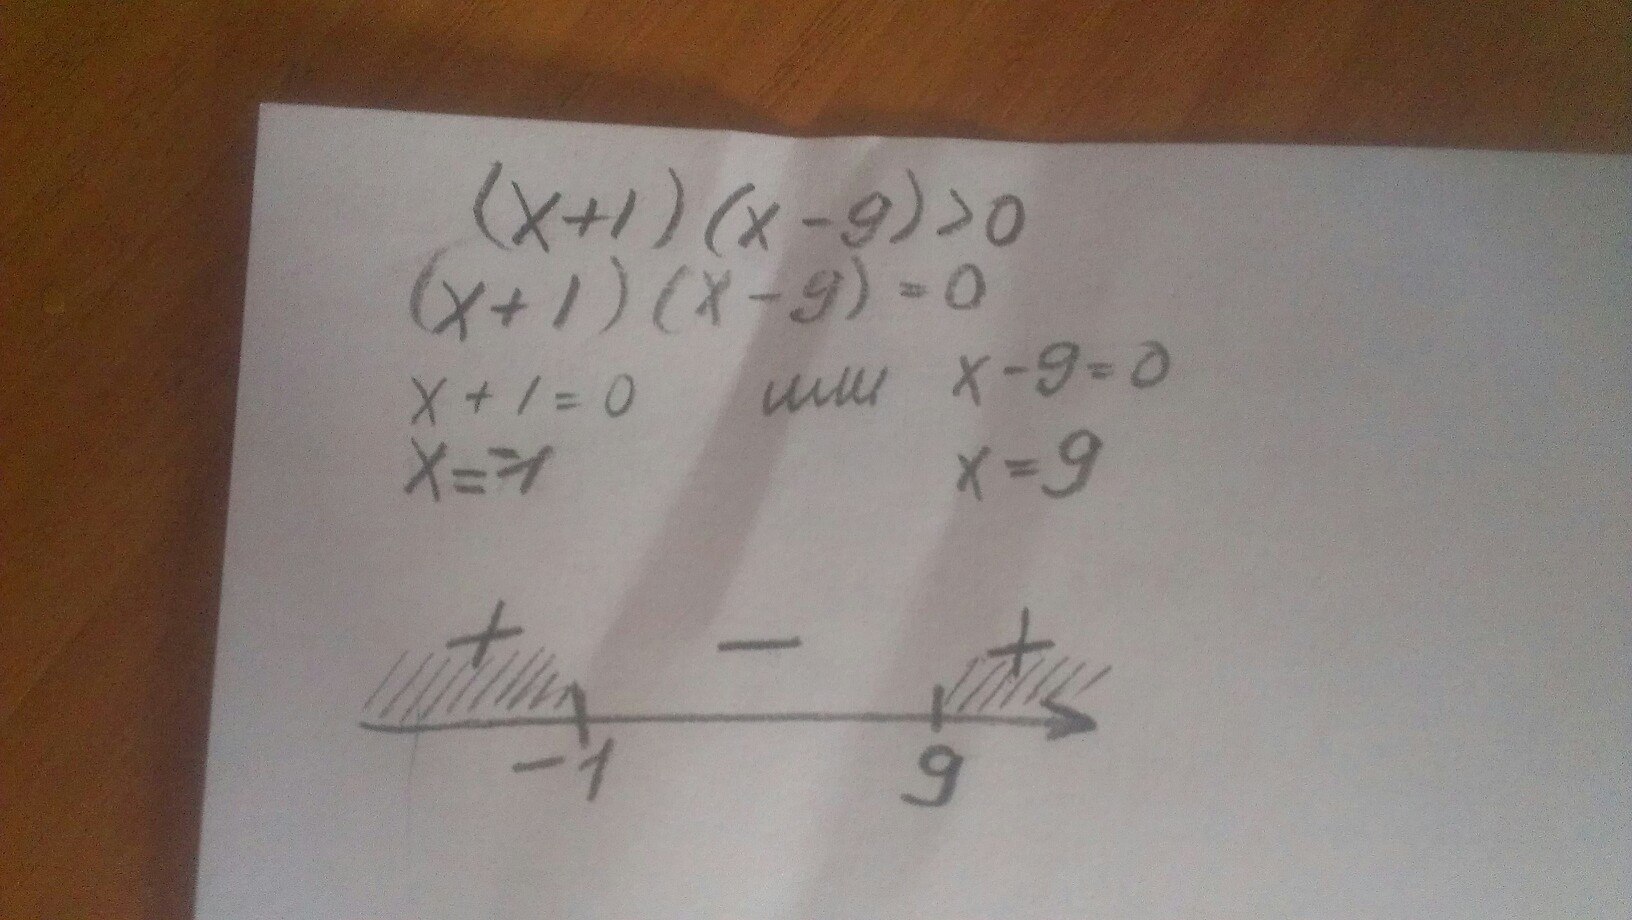 (x+1)(x-9)>0
(x+1)(x-9)=0
x+1=0 или x-9=0
x=-1 x=9
+ - +
-1 9